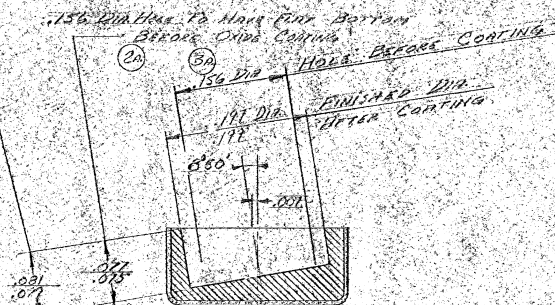 .156 DIA HOLE TO HAVE FLAT BOTTOM
BEFORE OXIDE COATING
2A 3A
.156 DIA HOLE BEFORE COATING
.197 DIA. FINISHED DIA.
.177 AFTER COATING
8°50'
.001
.077
.075
.081